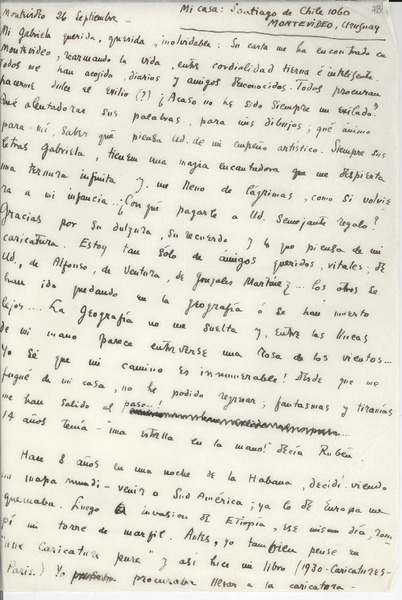 Mi casa: Santiago de Chile 1060
Montevideo 26 Septiembre - MONTEVIDEO, Uruguay
Mi Gabriela querida, querida, inolvidable: Su carta me ha encontrado en
Montevideo, rearmando la vida, entre cordialidad tierna é inteligente.
Todos me han acogido, diarios y amigos desconocidos. Todos procuran
hacerme dulce el exilio (?) ¿Acaso no he sido siempre un exilado?
Qué alentadoras sus palabras, para mis dibujos; qué ánimo
para mí, saber qué piensa Ud. de mi empeño artístico. Siempre sus
letras Gabriela, tienen una magia encantadora que me despierta
una ternura infinita y me lleno de lágrimas, como si volvie
ra a mi infancia. ¿Con qué pagarle a Ud. semejante regalo?
Gracias por su dulzura, su recuerdo y lo que piensa de mi
caricatura. Estoy tan sólo de amigos queridos, vitales; de
Ud., de Alfonso, de Ventura, de Gonzalez Martínez... los otros se
han ido quedando en la geografía ó se han muerto
lejos.... La Geografía no me suelta y, entre las líneas
de mi mano parece entreverse una Rosa de los vientos...
Yo sé que mi camino es innumerable! Desde que me
fugué de mi casa, no he podido regresar; fantasmas y tiranías
me han salido al paso...!
14 años tenía - "una estrella en la mano" decía Rubén.
Hace 8 años en una noche de la Habana, decidí - viendo
un mapa mundi - venir a Sud América; ya lo de Europa me
quemaba. Luego la invasion de Etiopia, ese mismo día, rom-
pí mi torre de marfil. Antes, yo tambien pense en
"une Caricature pure" y así hice mi libro (1930 - Caricatures -
Paris.) Yo procuraba llevar a la caricatura -